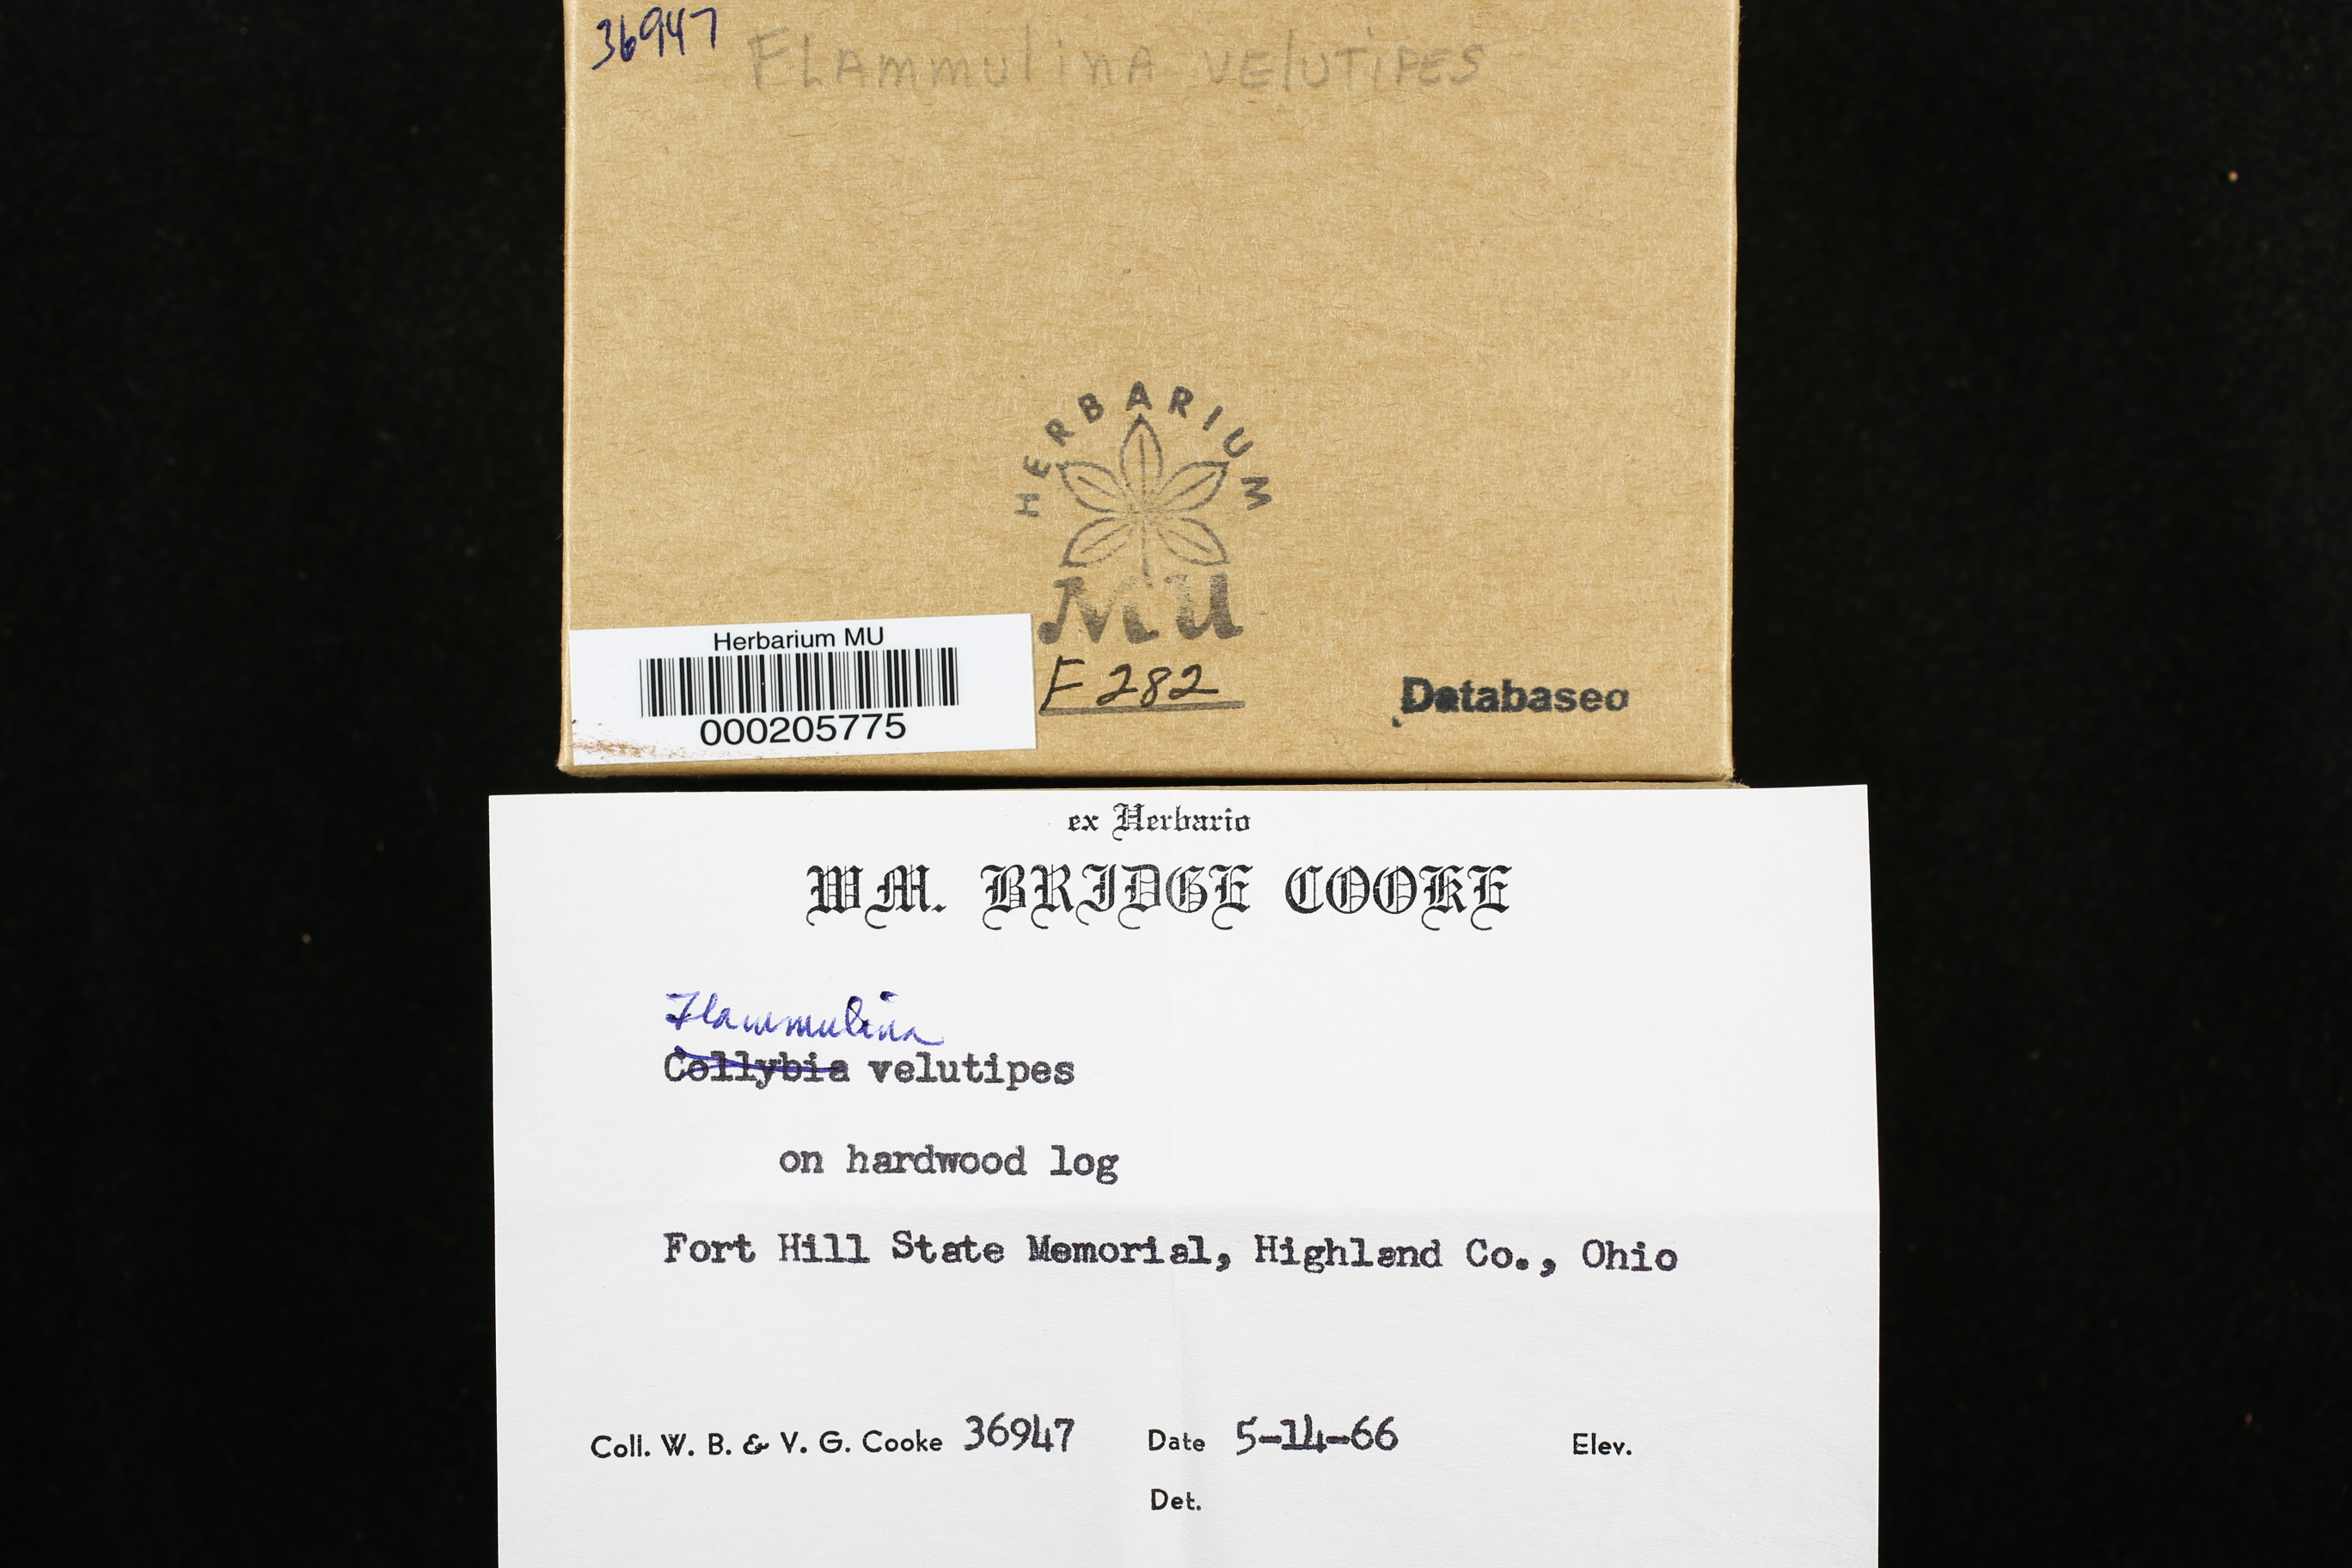 36947
FLAmmulinA VElUTiPES
HERBARIUM
MU
Herbarium MU
000205775
F 282
Databased
ex Herbario
WM. BRIDGE COOKE
Flammulina
Collybia velutipes
on hardwood log
Fort Hill State Memorial, Highland Co., Ohio
Coll. W. B. & V. G. Cooke 36947 Date 5-14-66 Elev.
Det.